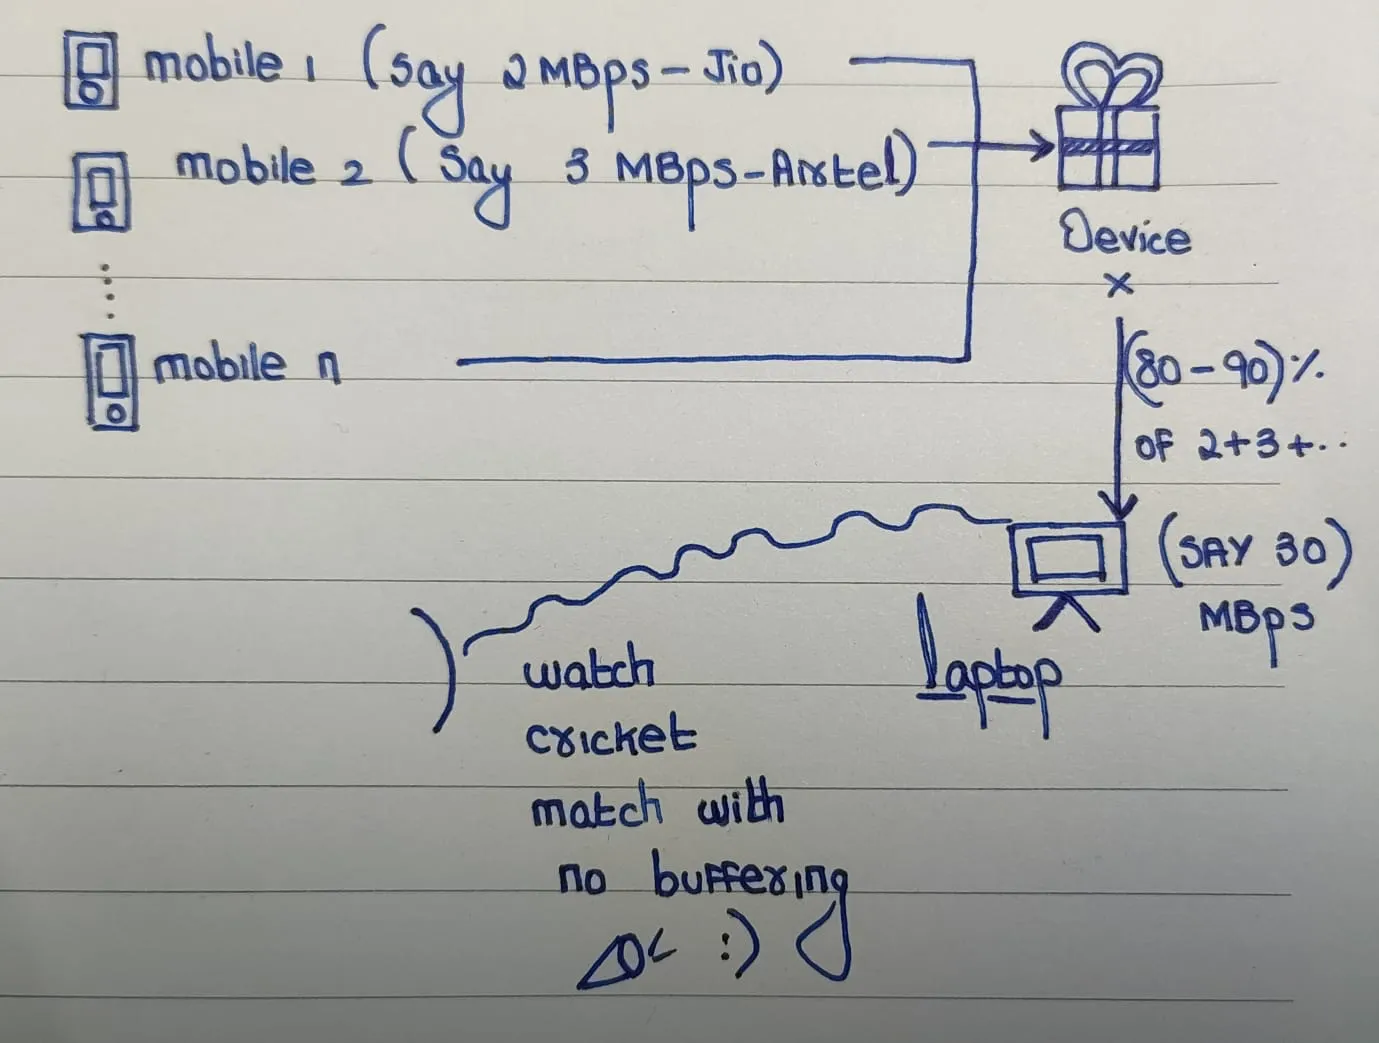 mobile 1 (say 2 MBps - Jio)
mobile 2 (say 3 MBps - Airtel)
mobile n
Device
X
(80 - 90)%
of 2+3+..
(SAY 30)
MBps
laptop
watch
cricket
match with
no buffering
:)